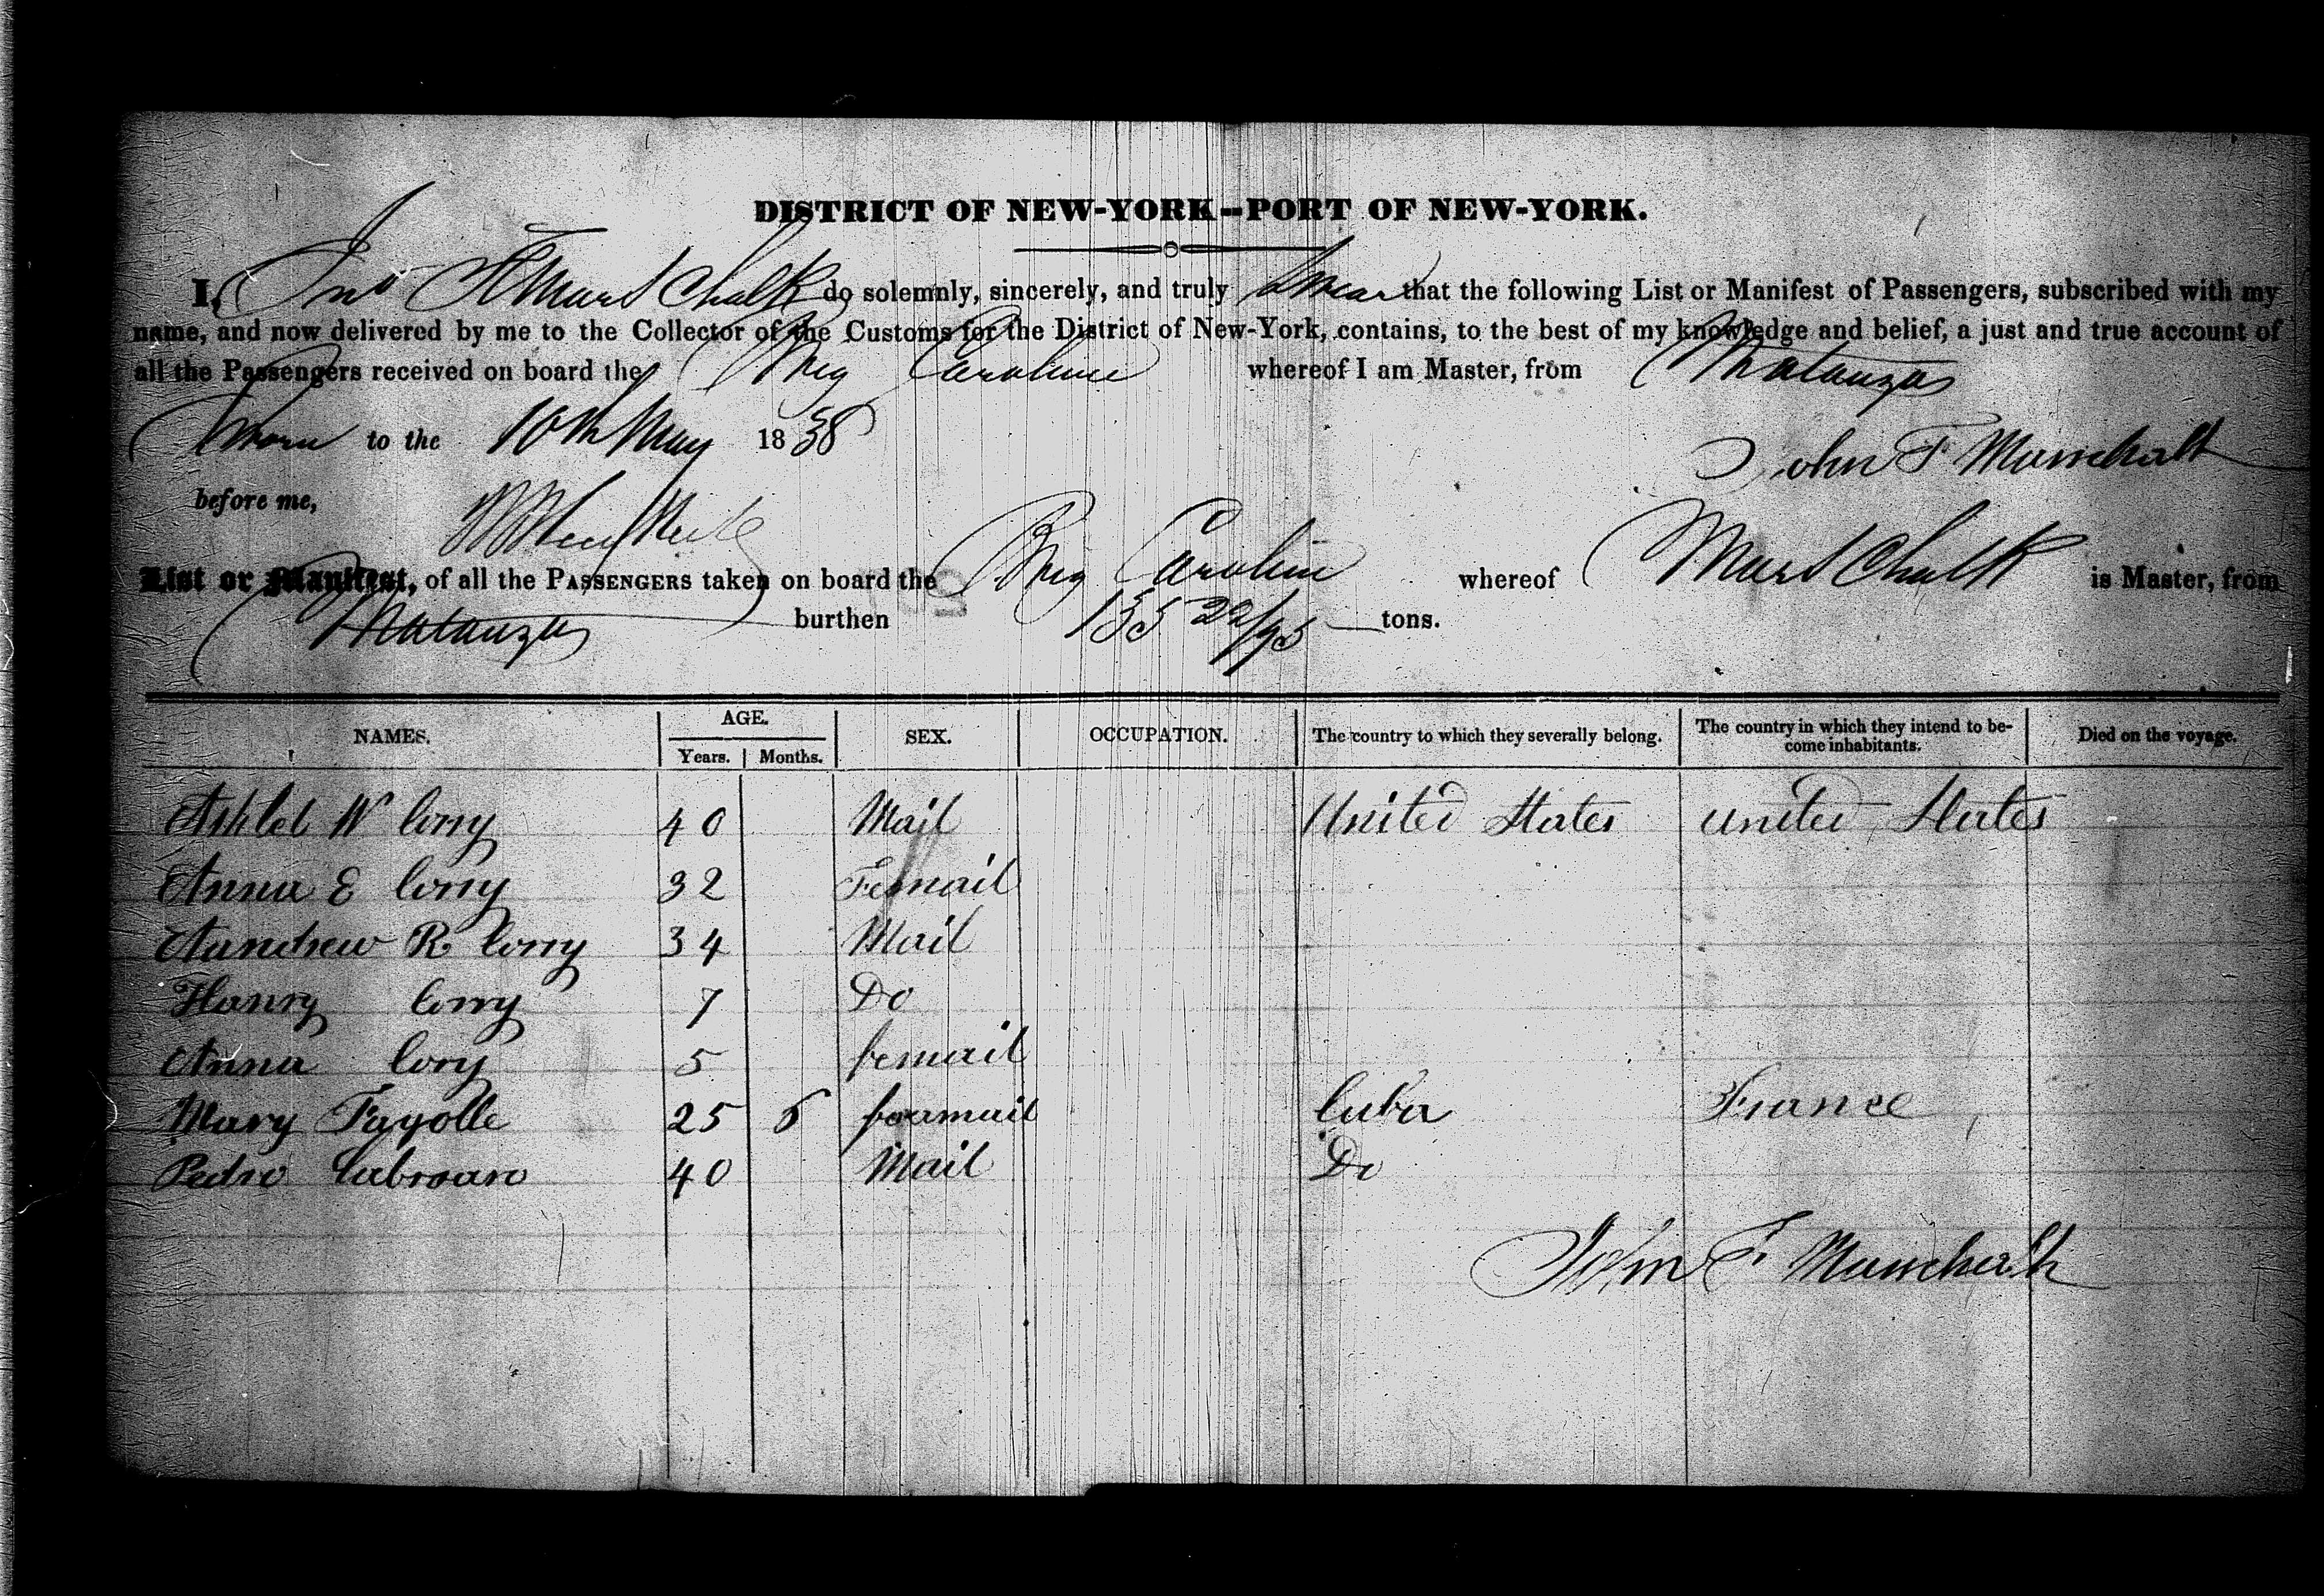 DISTRICT OF NEW-YORK--PORT OF NEW-YORK.
I, Jno F Murs Chalk do solemnly, sincerely, and truly Swear that the following List or Manifest of Passengers, subscribed with my
name, and now delivered by me to the Collector of the Customs for the District of New-York, contains, to the best of my knowledge and belief, a just and true account of
all the Passengers received on board the Brig Caroline whereof I am Master, from Matanzas
Sworn to the 10th May 1838
John F
before me,
List or Manifest, of all the PASSENGERS taken on board the Brig Caroline whereof Murs Chalk is Master, from
Matanzas burthen 135 22/95 tons.
NAMES. AGE. SEX. OCCUPATION. The country to which they severally belong. The country in which they intend to be-come inhabitants. Died on the voyage.
Years. Months.
W Corry 40 Mail United States United States
Anna E Corry 32 Femail
Aandrew R Corry 34 Mail
Hanry Corry 7 Do
Anna Cory 5 femail
Mary Fayolle 25 6 feamail Cuba France
Pedro 40 Mail Do
John F